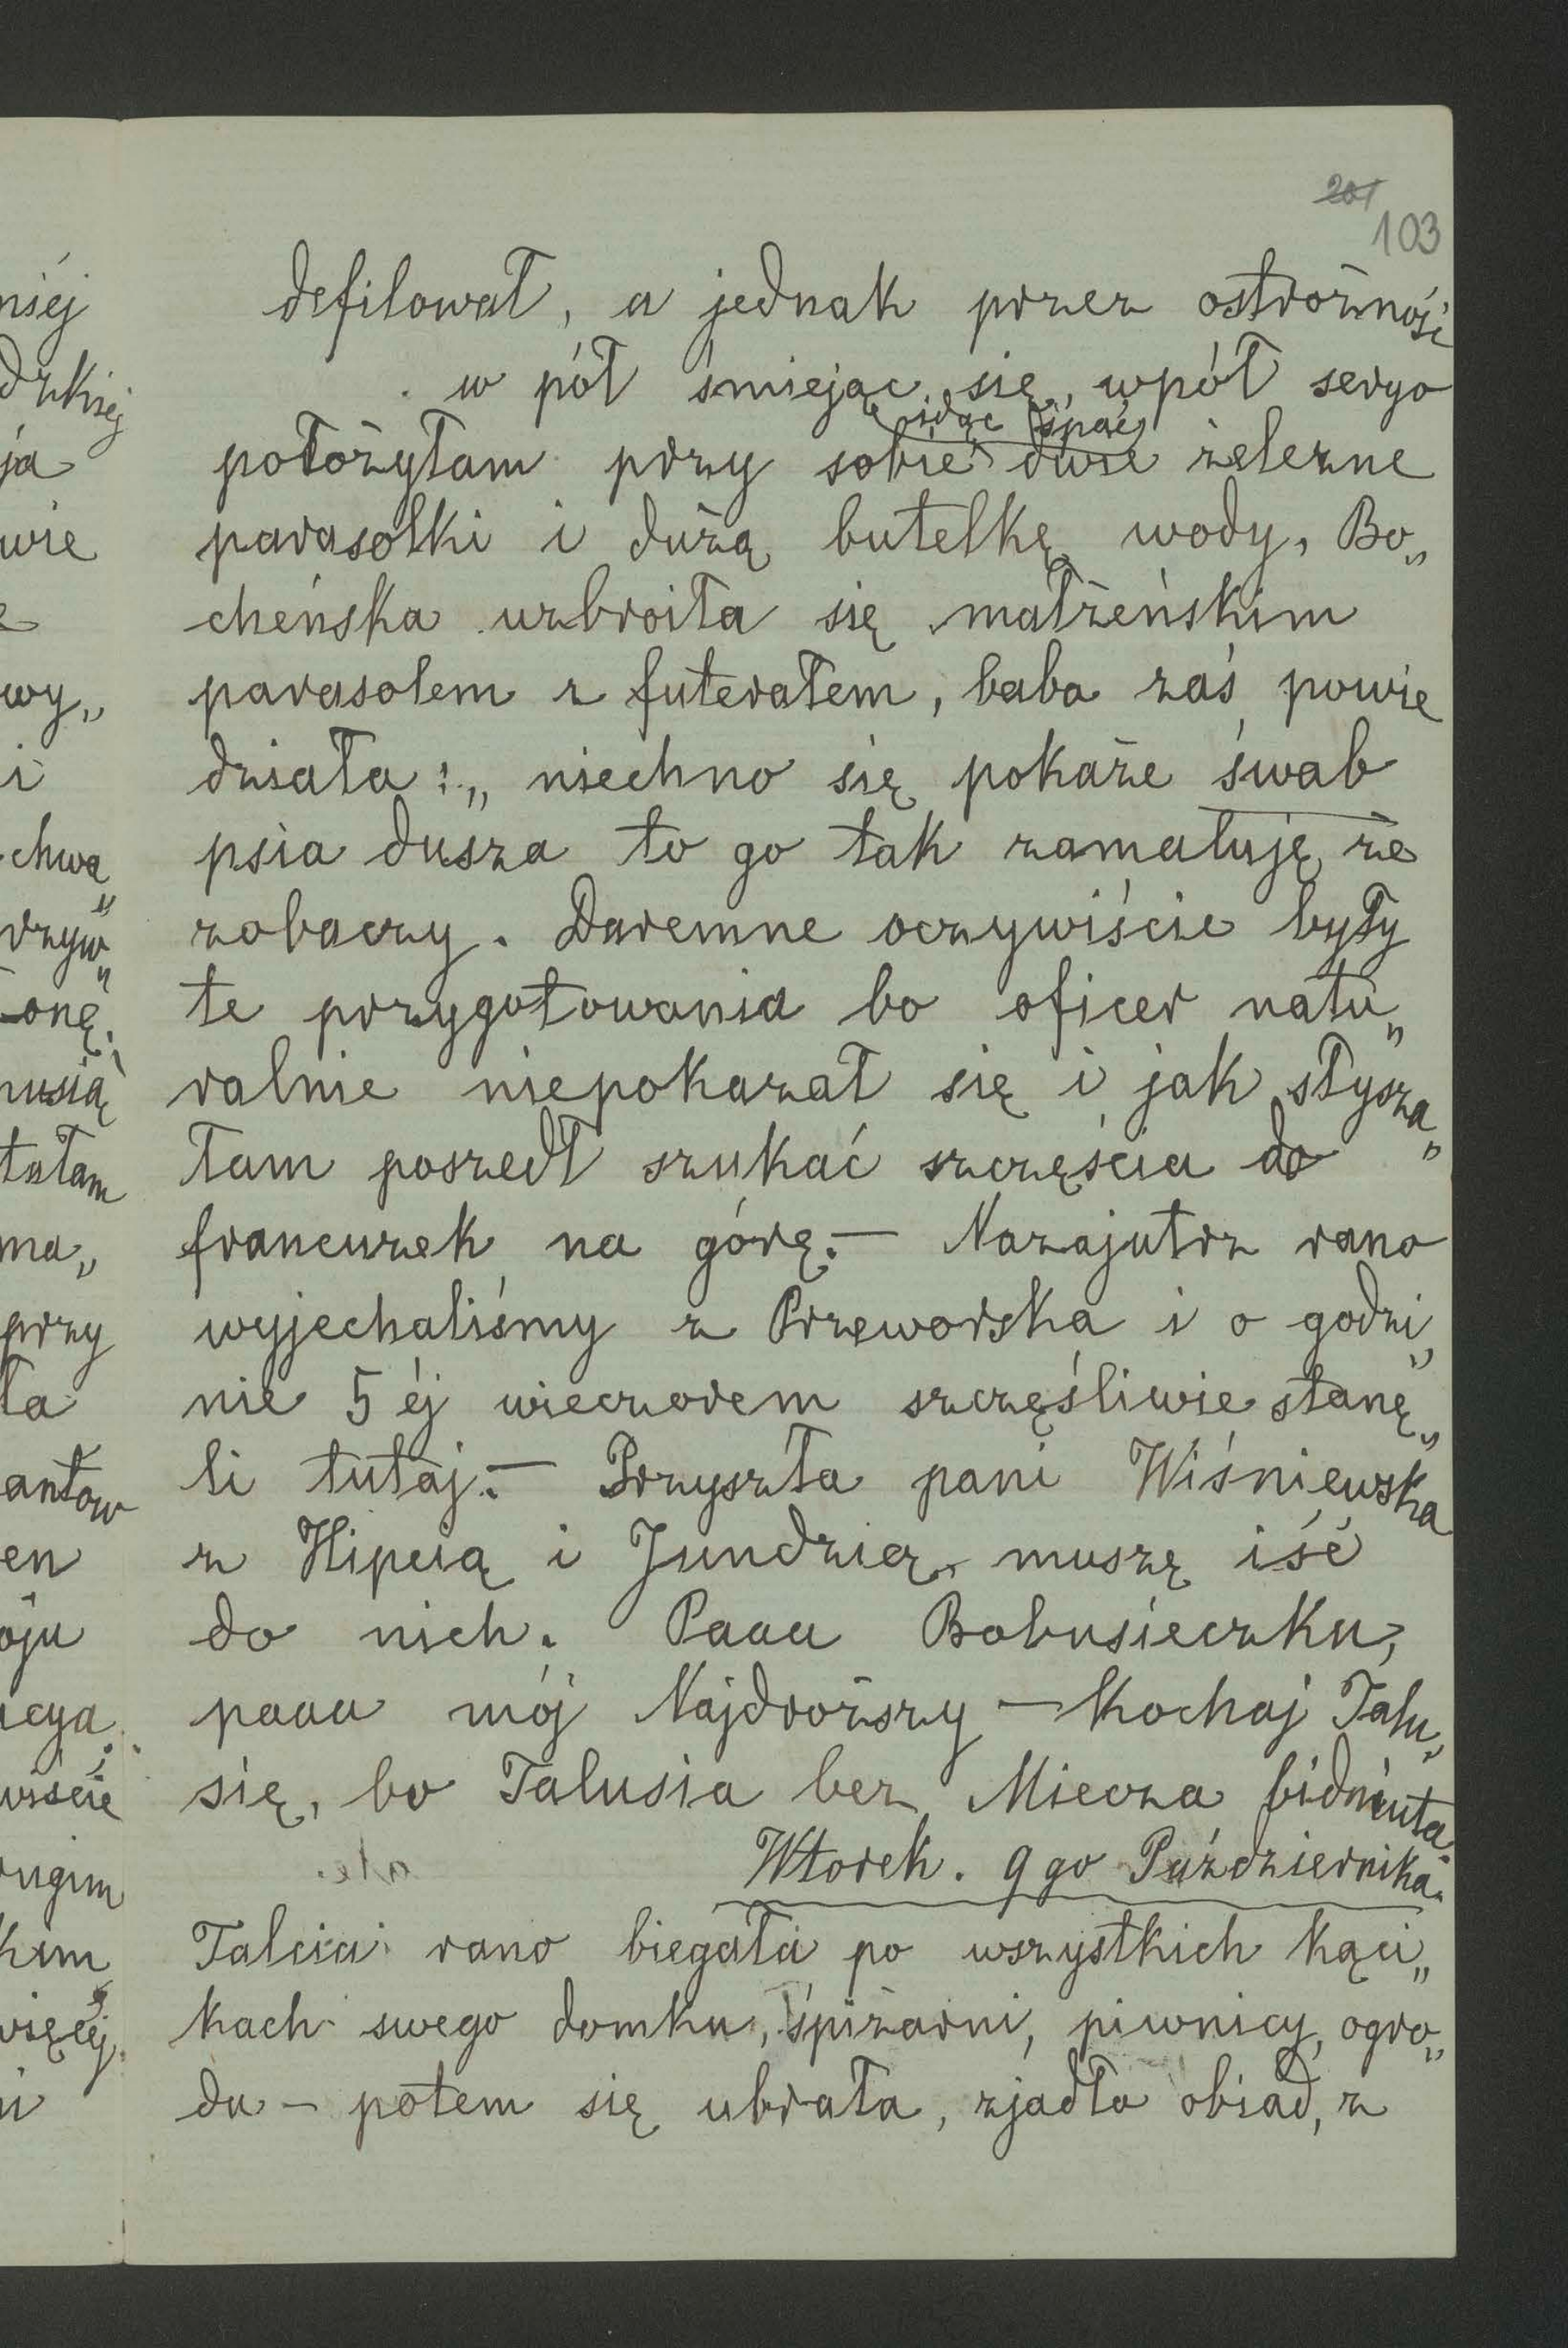 201
103
defilował, a jednak przez ostrożność
w pół śmiejąc się, wpół seryo
idąc spać
położyłam przy sobie dwie żelezne
parasolki i dużą butelkę wody, Bo„
cheńska uzbroiła się małżeńskim
parasolem z futerałem, baba zaś powie
działa: „niechno się pokaże śwab
psia dusza to go tak zamaluję, że
zobaczy. Daremne oczywiście były
te przygotowania bo oficer natu„
ralnie niepokazał się i jak słysza„
łam poszedł szukać szczęścia do
francuzek na górę. — Nazajutrz rano
wyjechaliśmy z Przeworska i o godzi„
nie 5 éj wieczorem szczęśliwie stanę„
li tutaj. — Przyszła pani Wiśniewska
z Hipcią i Jundzią, muszę iść
do nich. Paaa Bobusieczku,
paaa mój Najdroższy — Kochaj Talu„
się, bo Talusia bez Miecza bidniuta.
Wtorek. 9 go Października.
Talcia rano biegała po wszystkich kąci„
kach swego domku, śpiżarni, piwnicy, ogro„
du — potem się ubrała, zjadła obiad, z
niéj
ja
wie
wy„
i
chwa„
drzyw„
onę.
musią
tałam
ma„
przy
ła
antów
en
oju
acya.
wiście
drugim
kim
więcéj